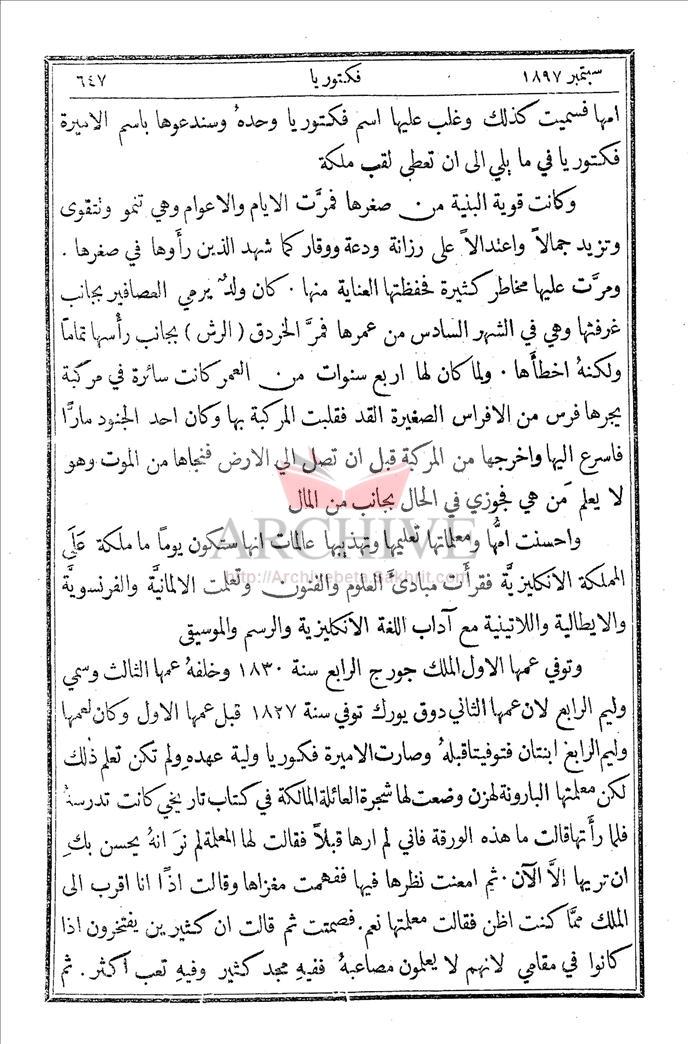 سبتمبر ١٨٩٧ فكتوريا ٦٤٧
امها فسميت كذلك وغلب عليها اسم فكتوريا وحدهُ وسندعوها باسم الاميرة
فكتوريا في ما يلي الى ان تعطى لقب ملكة
وكانت قوية البنية من صغرها فمرَّت الايام والاعوام وهي تنمو وتتقوى
وتزيد جمالاً واعتدالاً على رزانة ودعة ووقار كما شهد الذين رأَوها في صغرها .
ومرَّت عليها مخاطر كثيرة فحفظتها العناية منها . كان ولدٌ يرمي العصافير بجانب
غرفتها وهي في الشهر السادس من عمرها فمرَّ الخردق (الرش) بجانب رأْسها تماماً
ولكنهُ اخطأَها . ولما كان لها اربع سنوات من العمر كانت سائرة في مركبة
يجرها فرس من الافراس الصغيرة القد فقلبت المركبة بها وكان احد الجنود مارًّا
فاسرع اليها واخرجها من المركبة قبل ان تصل الى الارض فنجاها من الموت وهو
لا يعلم مَن هي فجوزي في الحال بجانب من المال
ARCHIVE
واحسنت امها ومعلماتها تعليمها وتهذيبها عالمات انها ستكون يوماً ما ملكة عَلَى
http://Archivebeta.Sakhrit.com
المملكة الانكليزيَّة فقرأَت مبادئَ العلوم والفنون وتعلمت الالمانيَّة والفرنسويَّة
والايطالية واللاتينية مع آداب اللغة الانكليزية والرسم والموسيقى
وتوفي عمها الاول الملك جورج الرابع سنة ١٨٣٠ وخلفهُ عمها الثالث وسمي
وليم الرابع لان عمها الثاني دوق يورك توفي سنة ١٨٢٧ قبل عمها الاول وكان لعمها
وليم الرابع ابنتان فتوفيتا قبلهُ وصارت الاميرة فكتوريا ولية عهدهِ ولم تكن تعلم ذلك
لكن معلمتها البارونة لهزن وضعت لها شجرة العائلة المالكة في كتاب تاريخي كانت تدرسهُ
فلما رأَتها قالت ما هذه الورقة فاني لم ارها قبلاً فقالت لها المعلمة لم نرَ انهُ يحسن بكِ
ان تريها الاَّ الآن . ثم امعنت نظرها فيها ففهمت مغزاها وقالت اذًا انا اقرب الى
الملك ممَّا كنت اظن فقالت معلمتها نعم . فصمتت ثم قالت ان كثيرين يفتخرون اذا
كانوا في مقامي لانهم لا يعلمون مصاعبهُ ففيهِ مجد كثير وفيهِ تعب اكثر . ثم